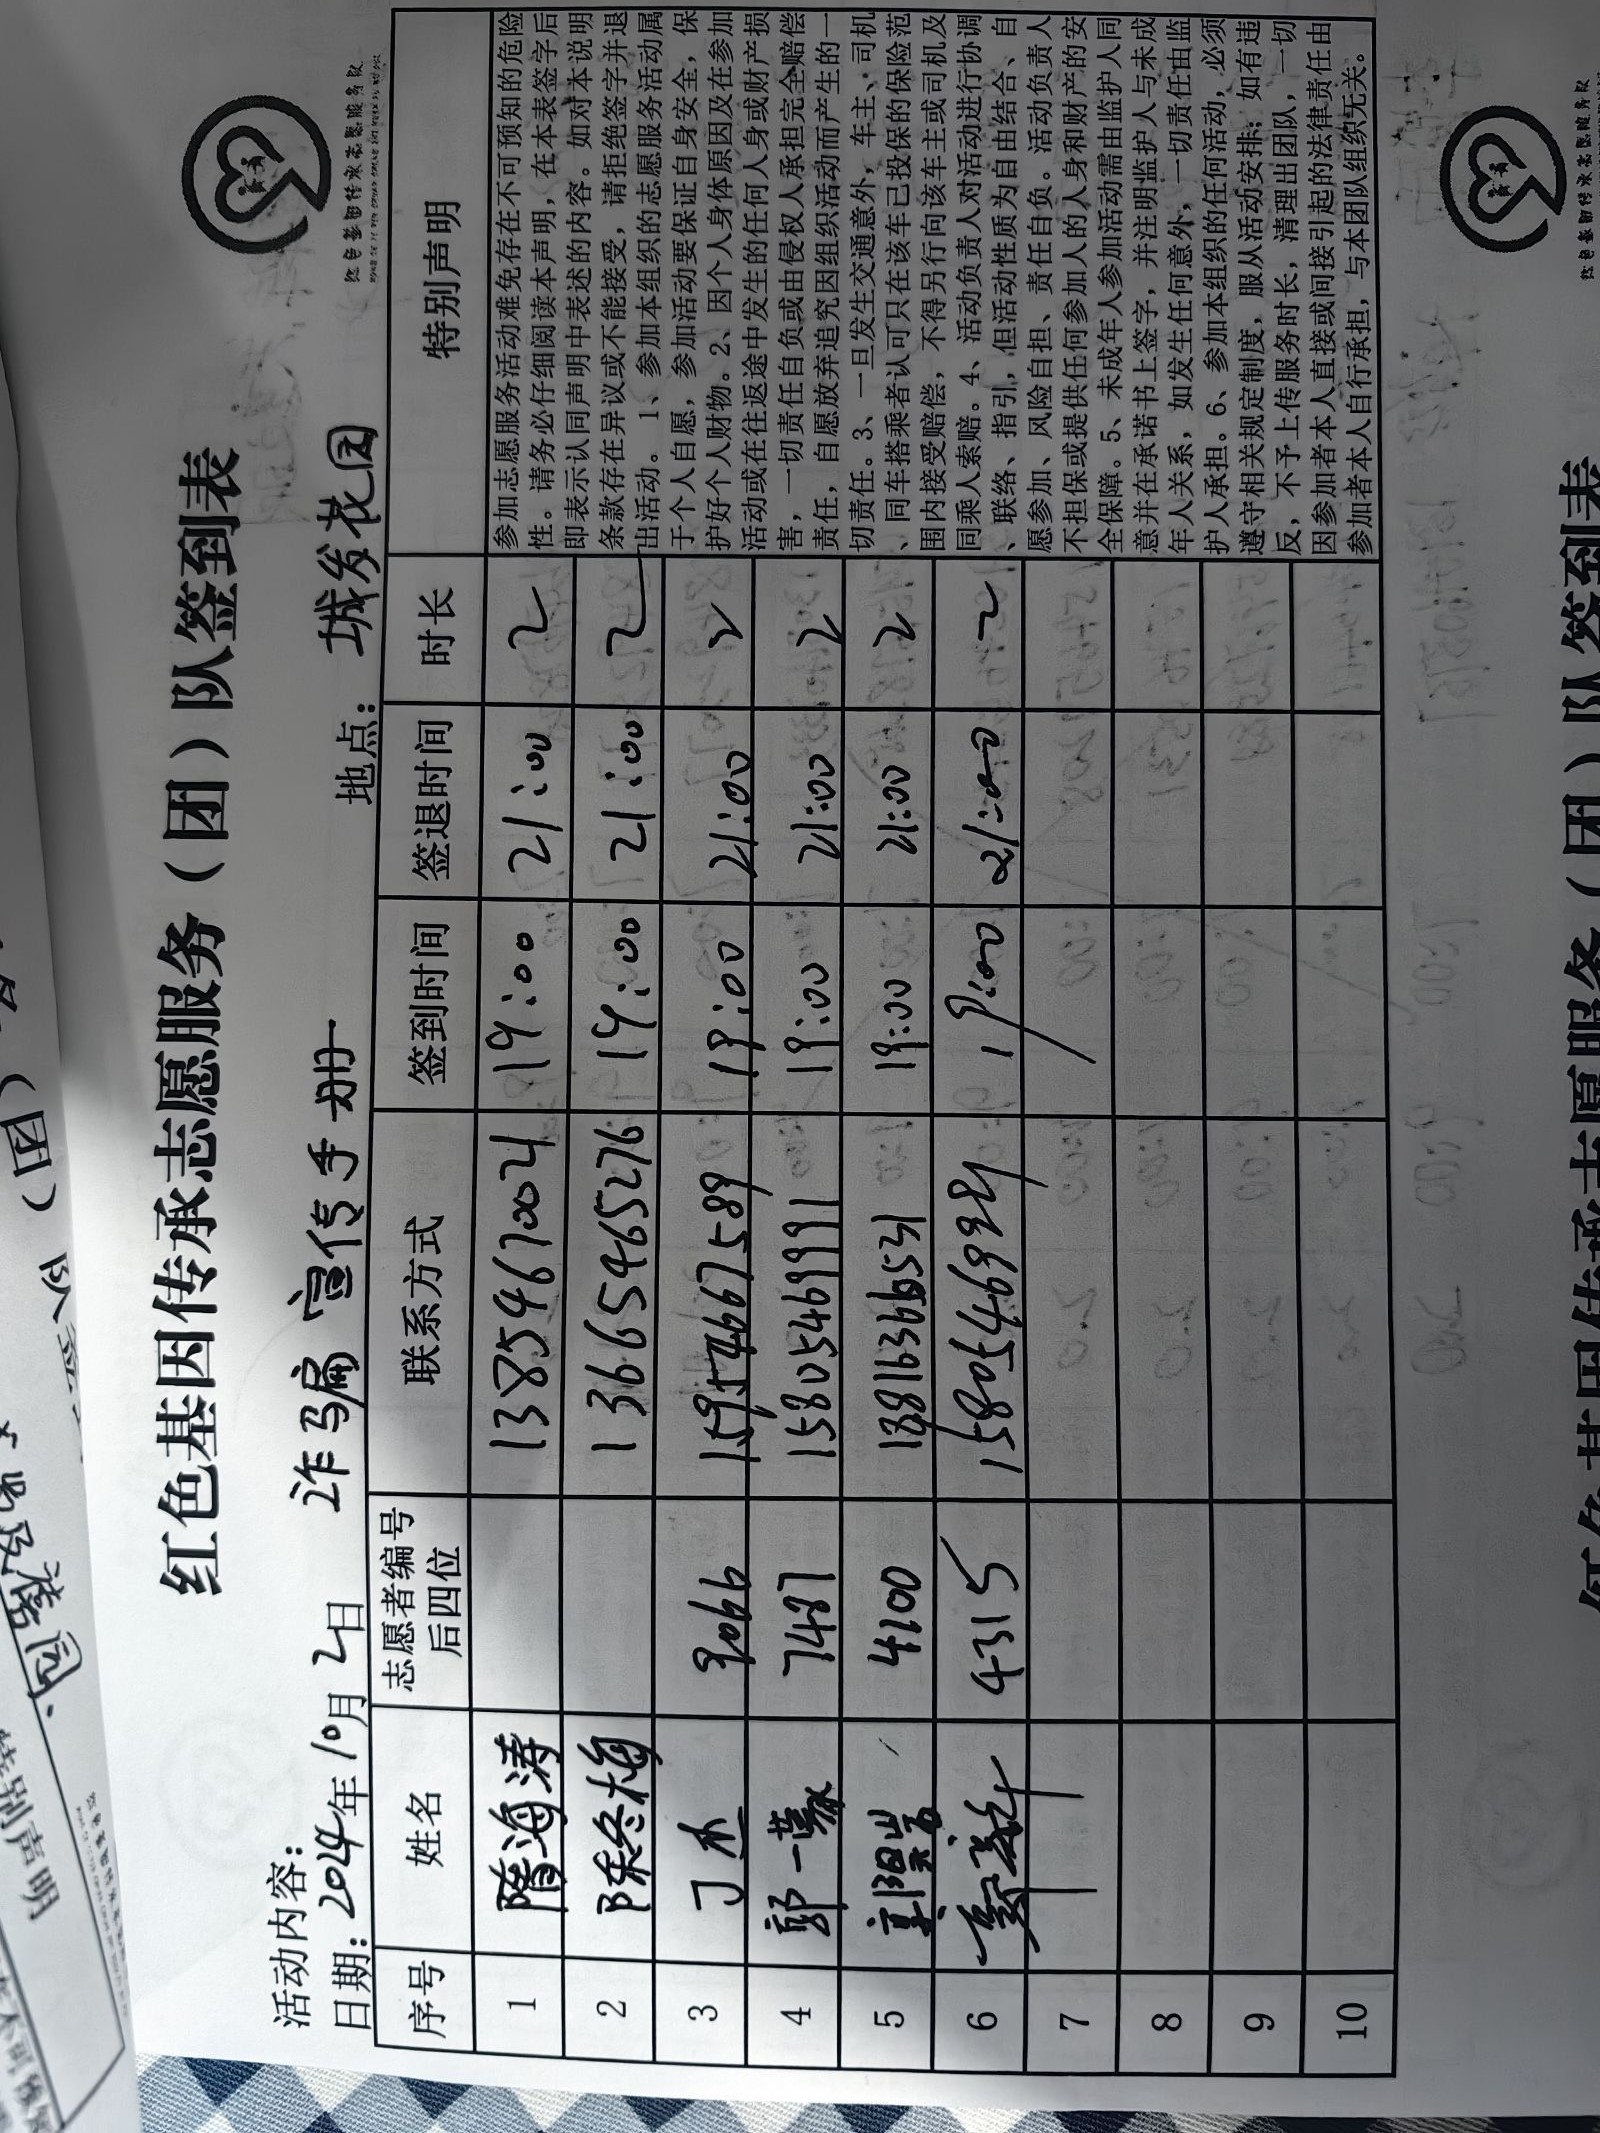 红色基因传承志愿服务（团）队签到表
活动内容： 诈骗宣传手册
日期：2024年10月2日 地点：城发花园
序号 姓名 志愿者编号后四位 联系方式 签到时间 签退时间 时长 特别声明
1 隋海涛 13854670021 19:00 21:00 2
2 陈冬梅 13665465276 19:00 21:00 2
3 9066 15954667589 19:00 21:00 2
4 郭一 7487 15805469991 19:00 21:00 2
5 4100 19:00 21:00 2
6 4315 19:00 21:00 2
7
8
9
10
参加志愿服务活动难免存在不可预知的危险
性。请务必仔细阅读本声明，在本表签字后
即表示认同声明中表述的内容。如对本说明
条款存在异议或不能接受，请拒绝签字并退
出活动。1、参加本组织的志愿服务活动属
于个人自愿，参加活动要保证自身安全，保
护好个人财物。2、因个人身体原因及在参加
活动或在往返途中发生的任何人身或财产损
害，一切责任自负或由侵权人承担完全赔偿
责任，自愿放弃追究因组织活动而产生的一
切责任。3、一旦发生交通意外，车主、司机
、同车搭乘者认可只在该车已投保的保险范
围内接受赔偿，不得另行向该车主或司机及
同乘人索赔。4、活动负责人对活动进行协调
、联络、指引，但活动性质为自由结合、自
愿参加、风险自担、责任自负。活动负责人
不担保或提供任何参加人的人身和财产的安
全保障。5、未成年人参加活动需由监护人同
意并在承诺书上签字，并注明监护人与未成
年人关系，如发生任何意外，一切责任由监
护人承担。6、参加本组织的任何活动，必须
遵守相关规定制度，服从活动安排；如有违
反，不予上传服务时长，清理出团队，一切
因参加者本人直接或间接引起的法律责任由
参加者本人自行承担，与本团队组织无关。
红色基因传承志愿服务